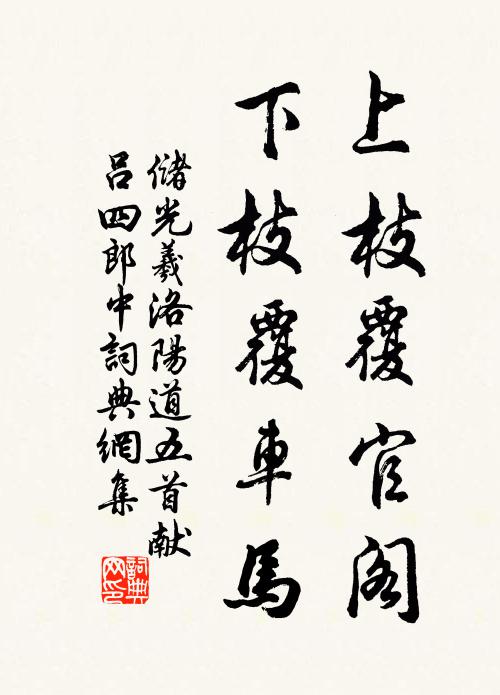 上枝覆官阁
下枝覆車馬
儲光羲洛陽道五首献
吕四郎中詞典網集
詞典网印